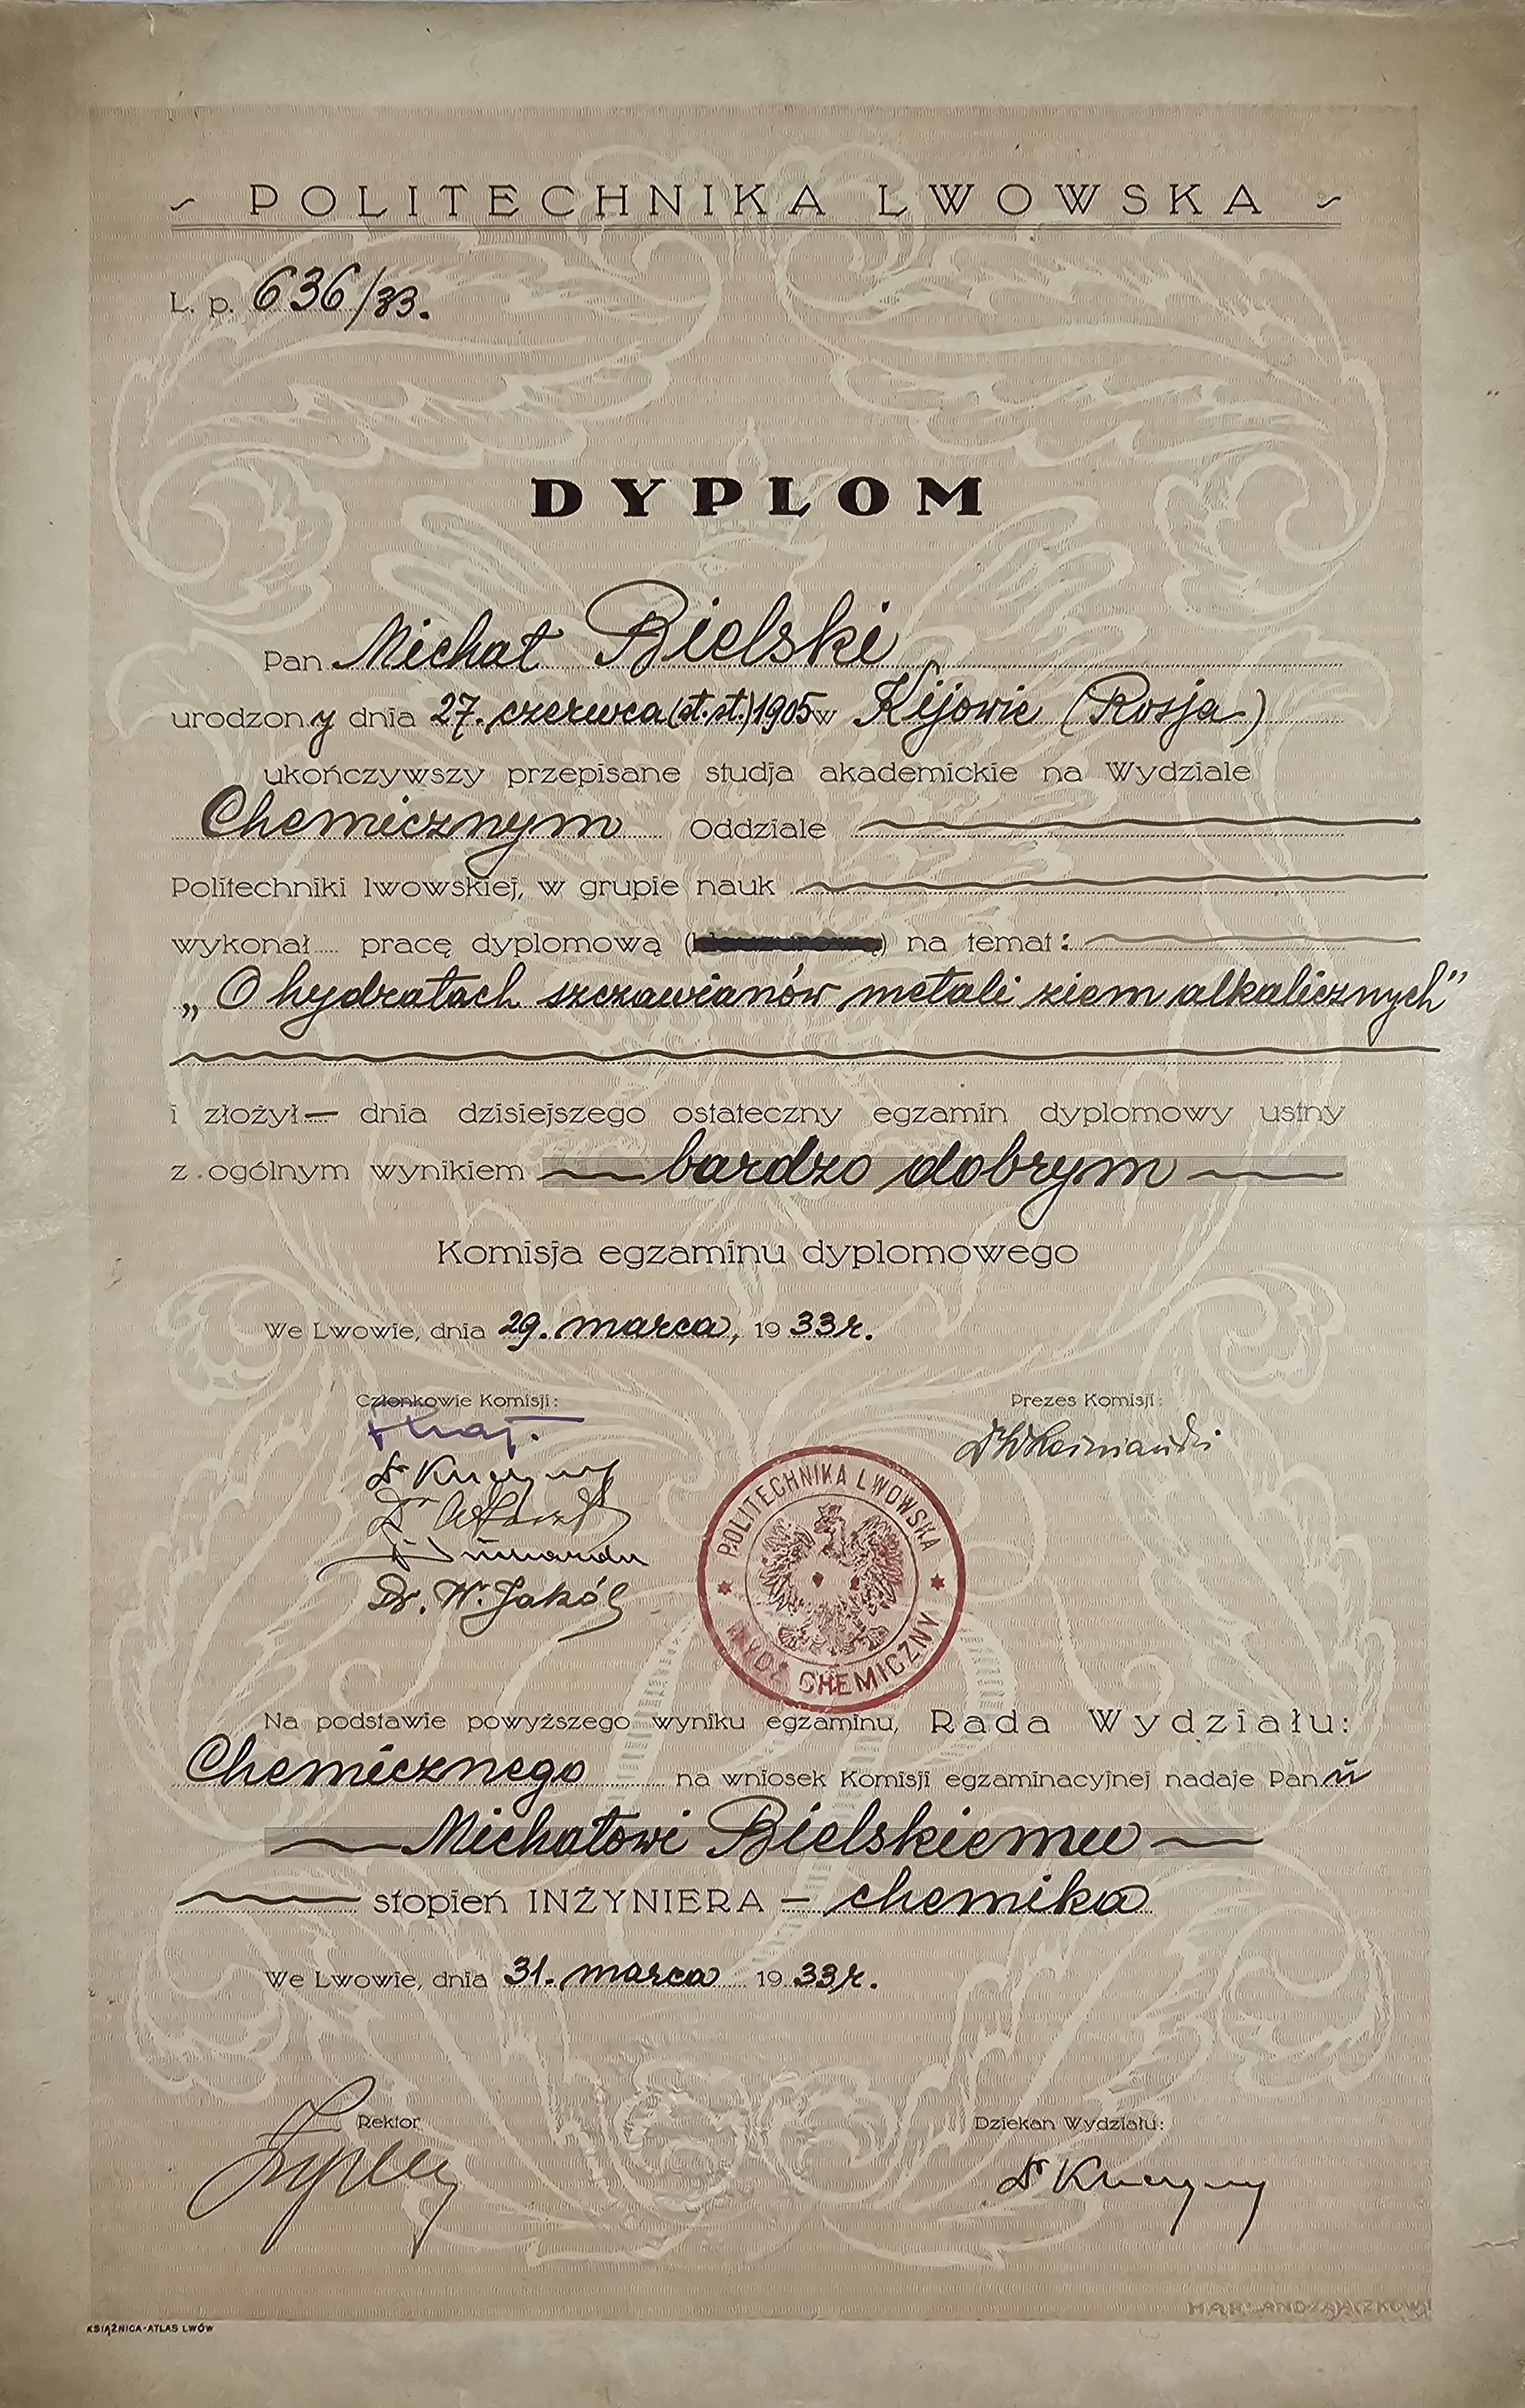 ~ POLITECHNIKA LWOWSKA ~
L. p. 636/33.
DYPLOM
Pan Michał Bielski
urodzony dnia 27. czerwca (st. st.) 1905 w Kijowie (Rosja)
ukończywszy przepisane studja akademickie na Wydziale
Chemicznym Oddziale
Politechniki lwowskiej, w grupie nauk
wykonał pracę dyplomową ( ) na temat:
„O hydratach szczawianów metali ziem alkalicznych"
i złożył — dnia dzisiejszego ostateczny egzamin dyplomowy ustny
z ogólnym wynikiem bardzo dobrym
Komisja egzaminu dyplomowego
We Lwowie, dnia 29. marca, 1933 r.
Członkowie Komisji:
Prezes Komisji:
Dr
Dr
Dr. W. Jakób
POLITECHNIKA LWOWSKA
WYDZ. CHEMICZNY
Na podstawie powyższego wyniku egzaminu, Rada Wydziału:
Chemicznego na wniosek Komisji egzaminacyjnej nadaje Panu
Michałowi Bielskiemu
stopień INŻYNIERA – chemika
We Lwowie, dnia 31. marca 1933 r.
Rektor
Dziekan Wydziału:
Dr
KSIĄŻNICA-ATLAS LWÓW